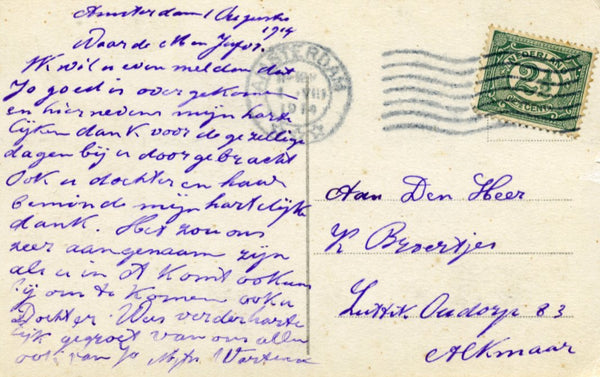 Amsterdam 1 Augustus
1914
Waarde Men Jufvr.
Ik wil u even melden dat
Jo goed is overgekomen
en hiernevens mijn harte
lijken dank voor de gezellige
dagen bij u doorgebracht
Ook u dochter en haar
beminde mijn hartelijke
dank. Het zou ons
zeer aangenaam zijn
als u in A komt ook eens
bij ons te komen ook u
Dochter. Wees verder harte
lijk gegroet van ons allen
ook van Jo
AMSTERDAM
NEDERLAND
2½
CENT
Aan Den Heer
K Broertjes
Luttik Oudorp 83
Alkmaar